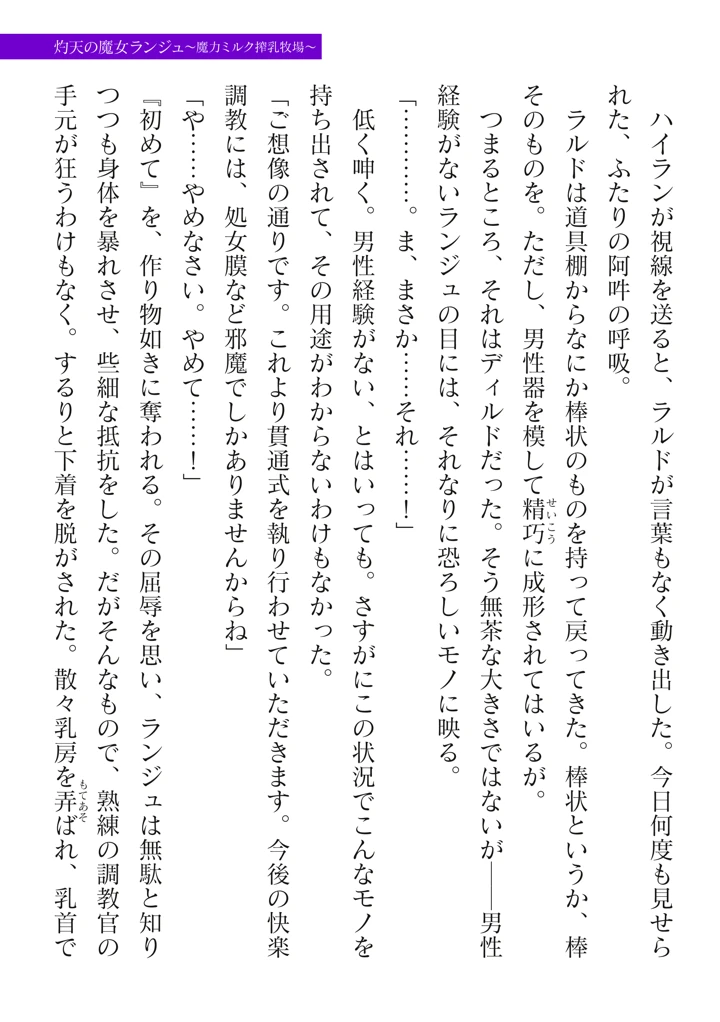 灼天の魔女ランジュ～魔力ミルク搾乳牧場～
ハイランが視線を送ると、ラルドが言葉もなく動き出した。今日何度も見せら
れた、ふたりの阿吽の呼吸。
ラルドは道具棚からなにか棒状のものを持って戻ってきた。棒状というか、棒
そのものを。ただし、男性器を模して精巧に成形されてはいるが。
せいこう
つまるところ、それはディルドだった。そう無茶な大きさではないが――男性
経験がないランジュの目には、それなりに恐ろしいモノに映る。
「…………。ま、まさか……それ……！」
低く呻く。男性経験がない、とはいっても。さすがにこの状況でこんなモノを
持ち出されて、その用途がわからないわけもなかった。
「ご想像の通りです。これより貫通式を執り行わせていただきます。今後の快楽
調教には、処女膜など邪魔でしかありませんからね」
「や……やめなさい。やめて……！」
『初めて』を、作り物如きに奪われる。その屈辱を思い、ランジュは無駄と知り
つつも身体を暴れさせ、些細な抵抗をした。だがそんなもので、熟練の調教官の
手元が狂うわけもなく。するりと下着を脱がされた。散々乳房を弄ばれ、乳首で
もてあそ